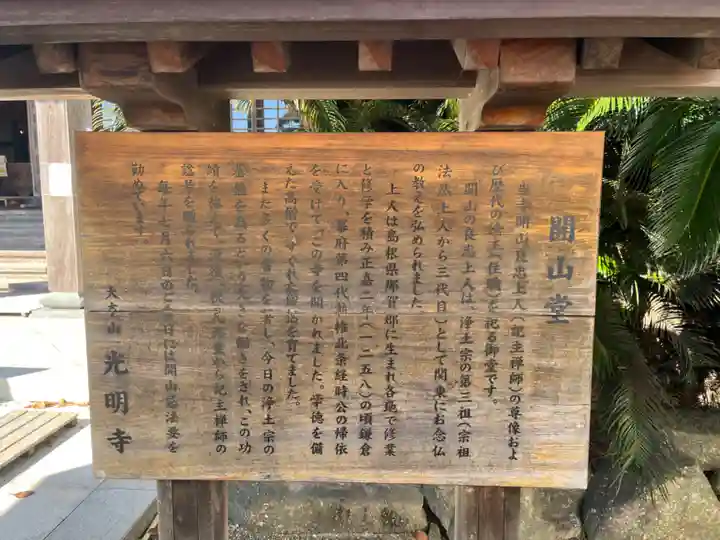 開山堂
当寺開山良忠上人(記主禅師)の尊像およ
び歴代の法主(住職)を祀る御堂です。
開山の良忠上人は、浄土宗の第三祖(宗祖
法然上人から三代目)として関東にお念仏
の教えを弘められました
上人は島根県那賀郡に生まれ各地で修業
と修学を積み正嘉二年(一二五八)の頃鎌倉
に入り、幕府第四代執権北条経時公の帰依
を受けて、この寺を開かれました。学徳を備
えた高僧で、すぐれた を育てました。
また多くの書物を著し、今日の浄土宗の
基礎を造るという大きな働きをされ、この功
績を 記主禅師の
諡号を贈られました。
毎年七月六日の 日には開山忌法要を
勤めています。
天照山 光明寺